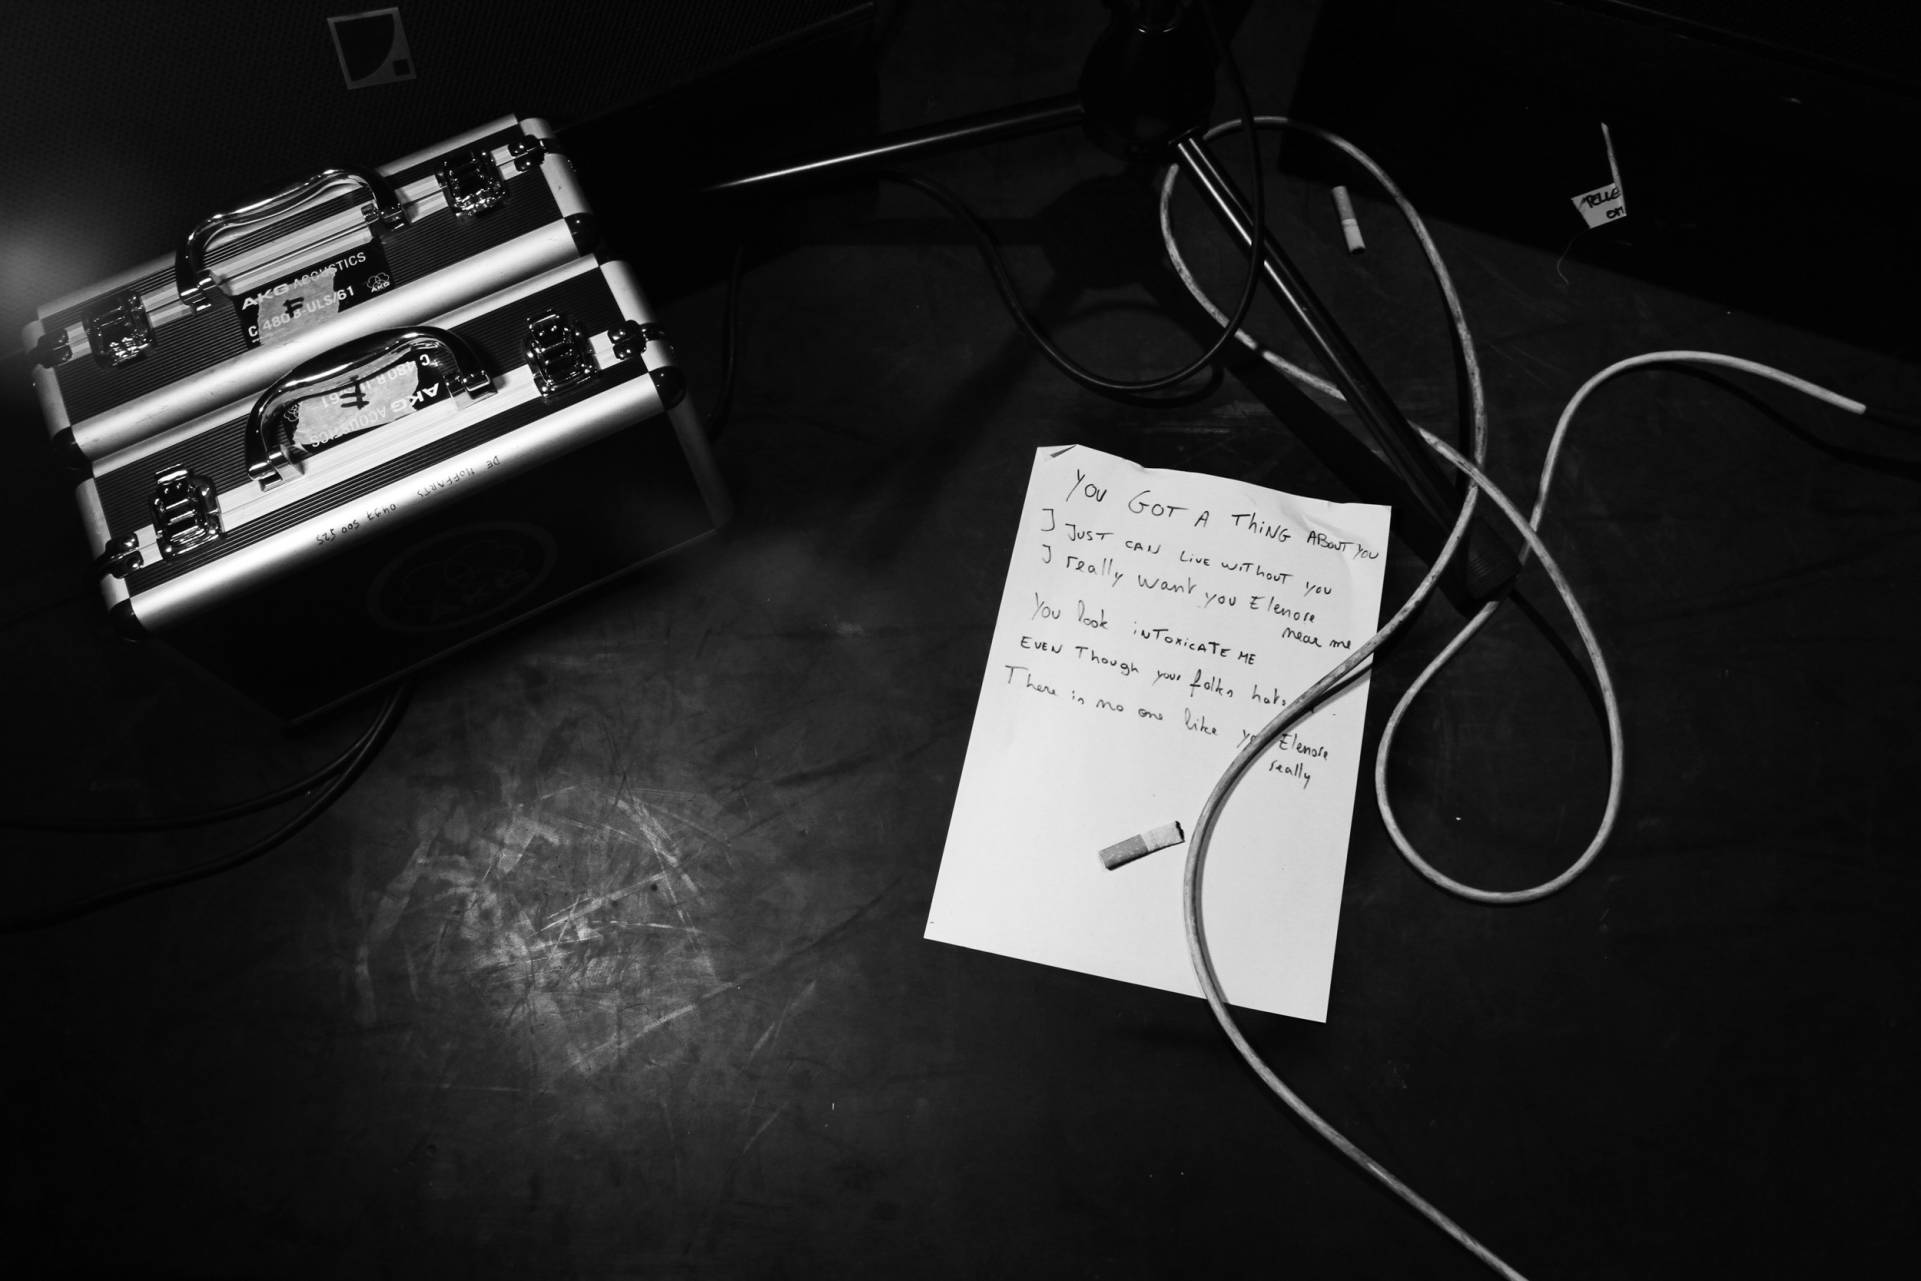 AKG ACOUSTICS
C 480 B-ULS/61
AKG
AKG ACOUSTICS
C 480 B-ULS/61
DE HOFFARTS
YOU GOT A THING ABOUT YOU
I JUST CAN LIVE WITHOUT YOU
I really want you Elenore
near me
You look INTOXICATE ME
EVEN Though your folks hate
There is no one like you Elenore
really